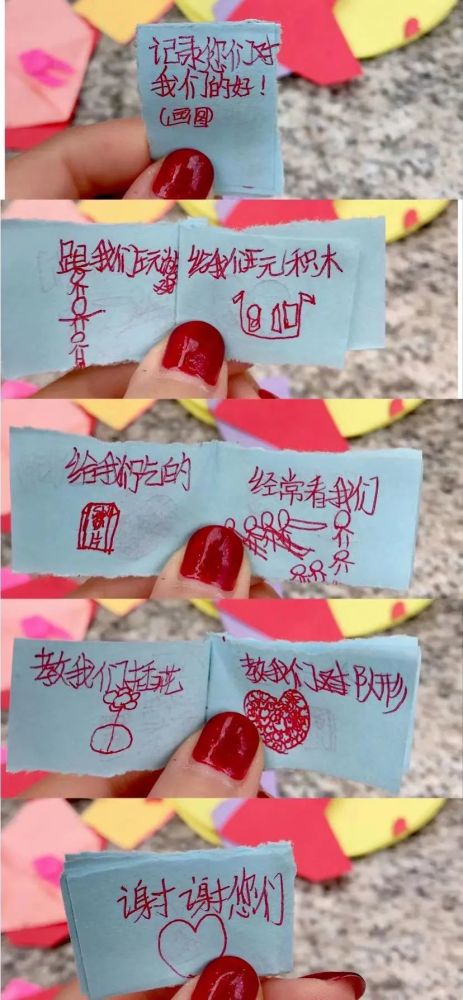 记录您们对
我们的好！
(画图)
跟我们玩游
给我们玩积木
给我们吃的
经常看我们
教我们插花
教我们队形
谢谢您们